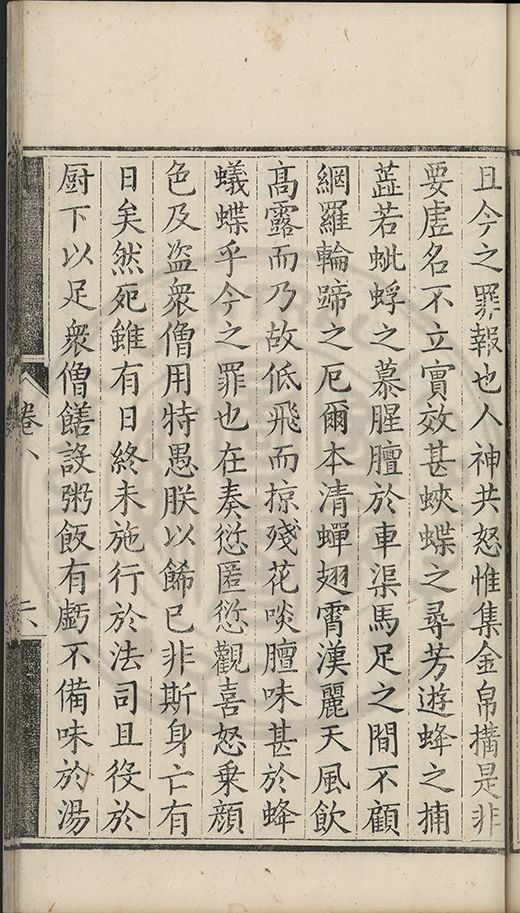 且今之罪報也人神共怒惟集金帛搆是非
要虗名不立實效甚蛺蝶之尋芳遊蜂之捕
蕋若蚍蜉之慕腥膻於車渠馬足之間不顧
網羅輪蹄之厄爾本清蟬翅霄漢麗天風飲
高露而乃故低飛而掠殘花啖膻味甚於蜂
蟻蝶乎今之罪也在奏愆匿愆觀喜怒乗顔
色及盜衆僧用特愚朕以餙已非斯身亡有
日矣然死雖有日終未施行於法司且役於
厨下以足衆僧饍設粥飯有虧不備味於湯
卷八
六